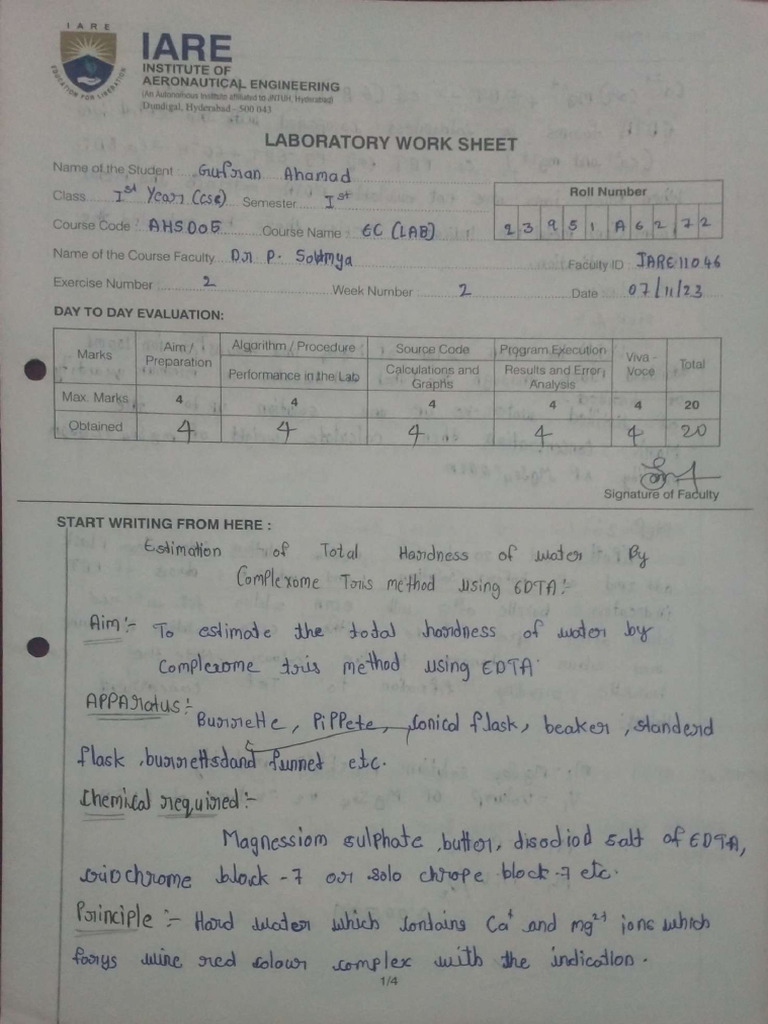 IARE
EDUCATION FOR LIBERATION
IARE
INSTITUTE OF
AERONAUTICAL ENGINEERING
(An Autonomous Institute affiliated to JNTUH, Hyderabad)
Dundigal, Hyderabad - 500 043
LABORATORY WORK SHEET
Name of the Student Gufran Ahamad
Class Ist Year (CSE) Semester Ist
Roll Number
23951A6272
Course Code AHS005 Course Name EC (LAB)
Name of the Course Faculty Dr P. Sowmya Faculty ID IARE11046
Exercise Number 2 Week Number 2 Date 07/11/23
DAY TO DAY EVALUATION:
Marks Aim / Preparation Algorithm / Procedure Source Code Program Execution Viva - Voce Total
Performance in the Lab Calculations and Graphs Results and Error Analysis
Max. Marks 4 4 4 4 4 20
Obtained 4 4 4 4 4 20
Signature of Faculty
START WRITING FROM HERE :
Estimation of Total Hardness of water By
Complexome Tris method using EDTA:-
Aim:- To estimate the total hardness of water by
Complexome tris method using EDTA.
APPARatus:-
Burrette, PiPPete, Conical flask, beaker, standerd
flask, burrettsdand funnet etc.
Chemical required:-
Magnessiom sulphate, butter, disodiod salt of EDTA,
oriochrome block -7 or solo chrope block -7 etc.
Principle :- Hard water which contains Ca+ and mg2+ ions which
forys wine red colour complex with the indication.
1/4